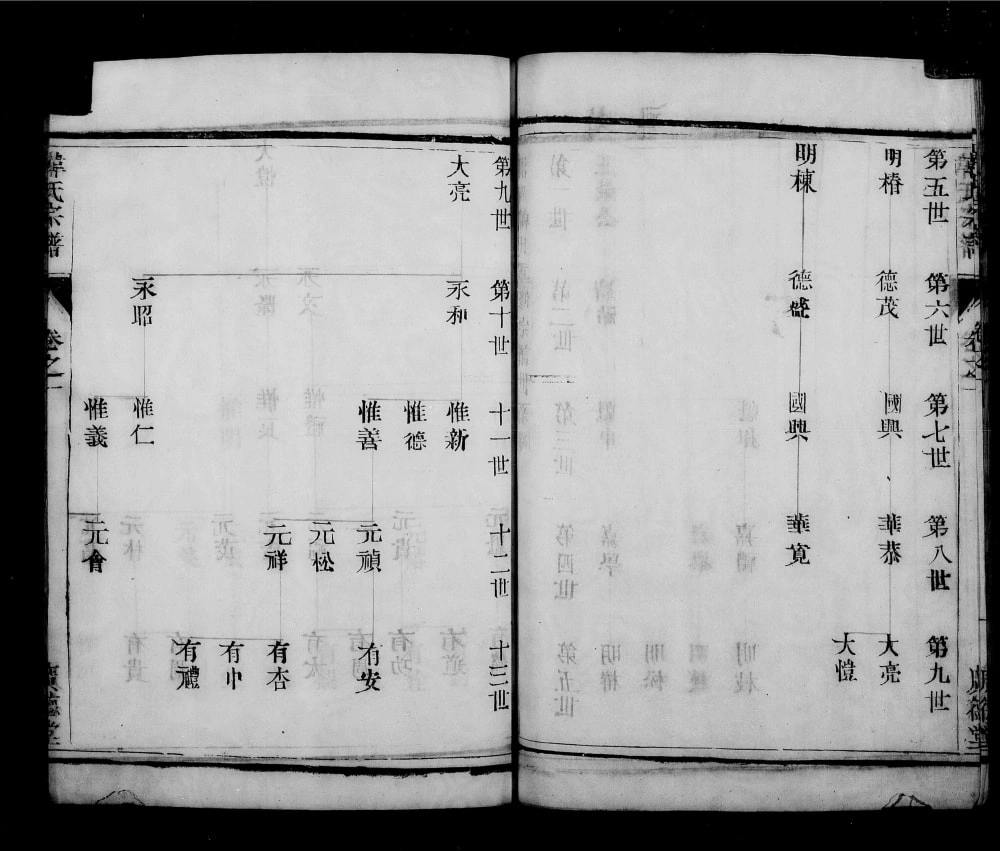 第五世
第六世
第七世
第八世
第九世
明椿
德茂
國興
華恭
大亮
大愷
明棟
德盛
國興
華寛
第九世
第十世
十一世
十二世
十三世
大亮
永和
惟新
惟德
惟善
元禎
有安
元松
元祥
有杏
有中
有禮
永昭
惟仁
惟義
元會
韓氏宗譜
卷之一